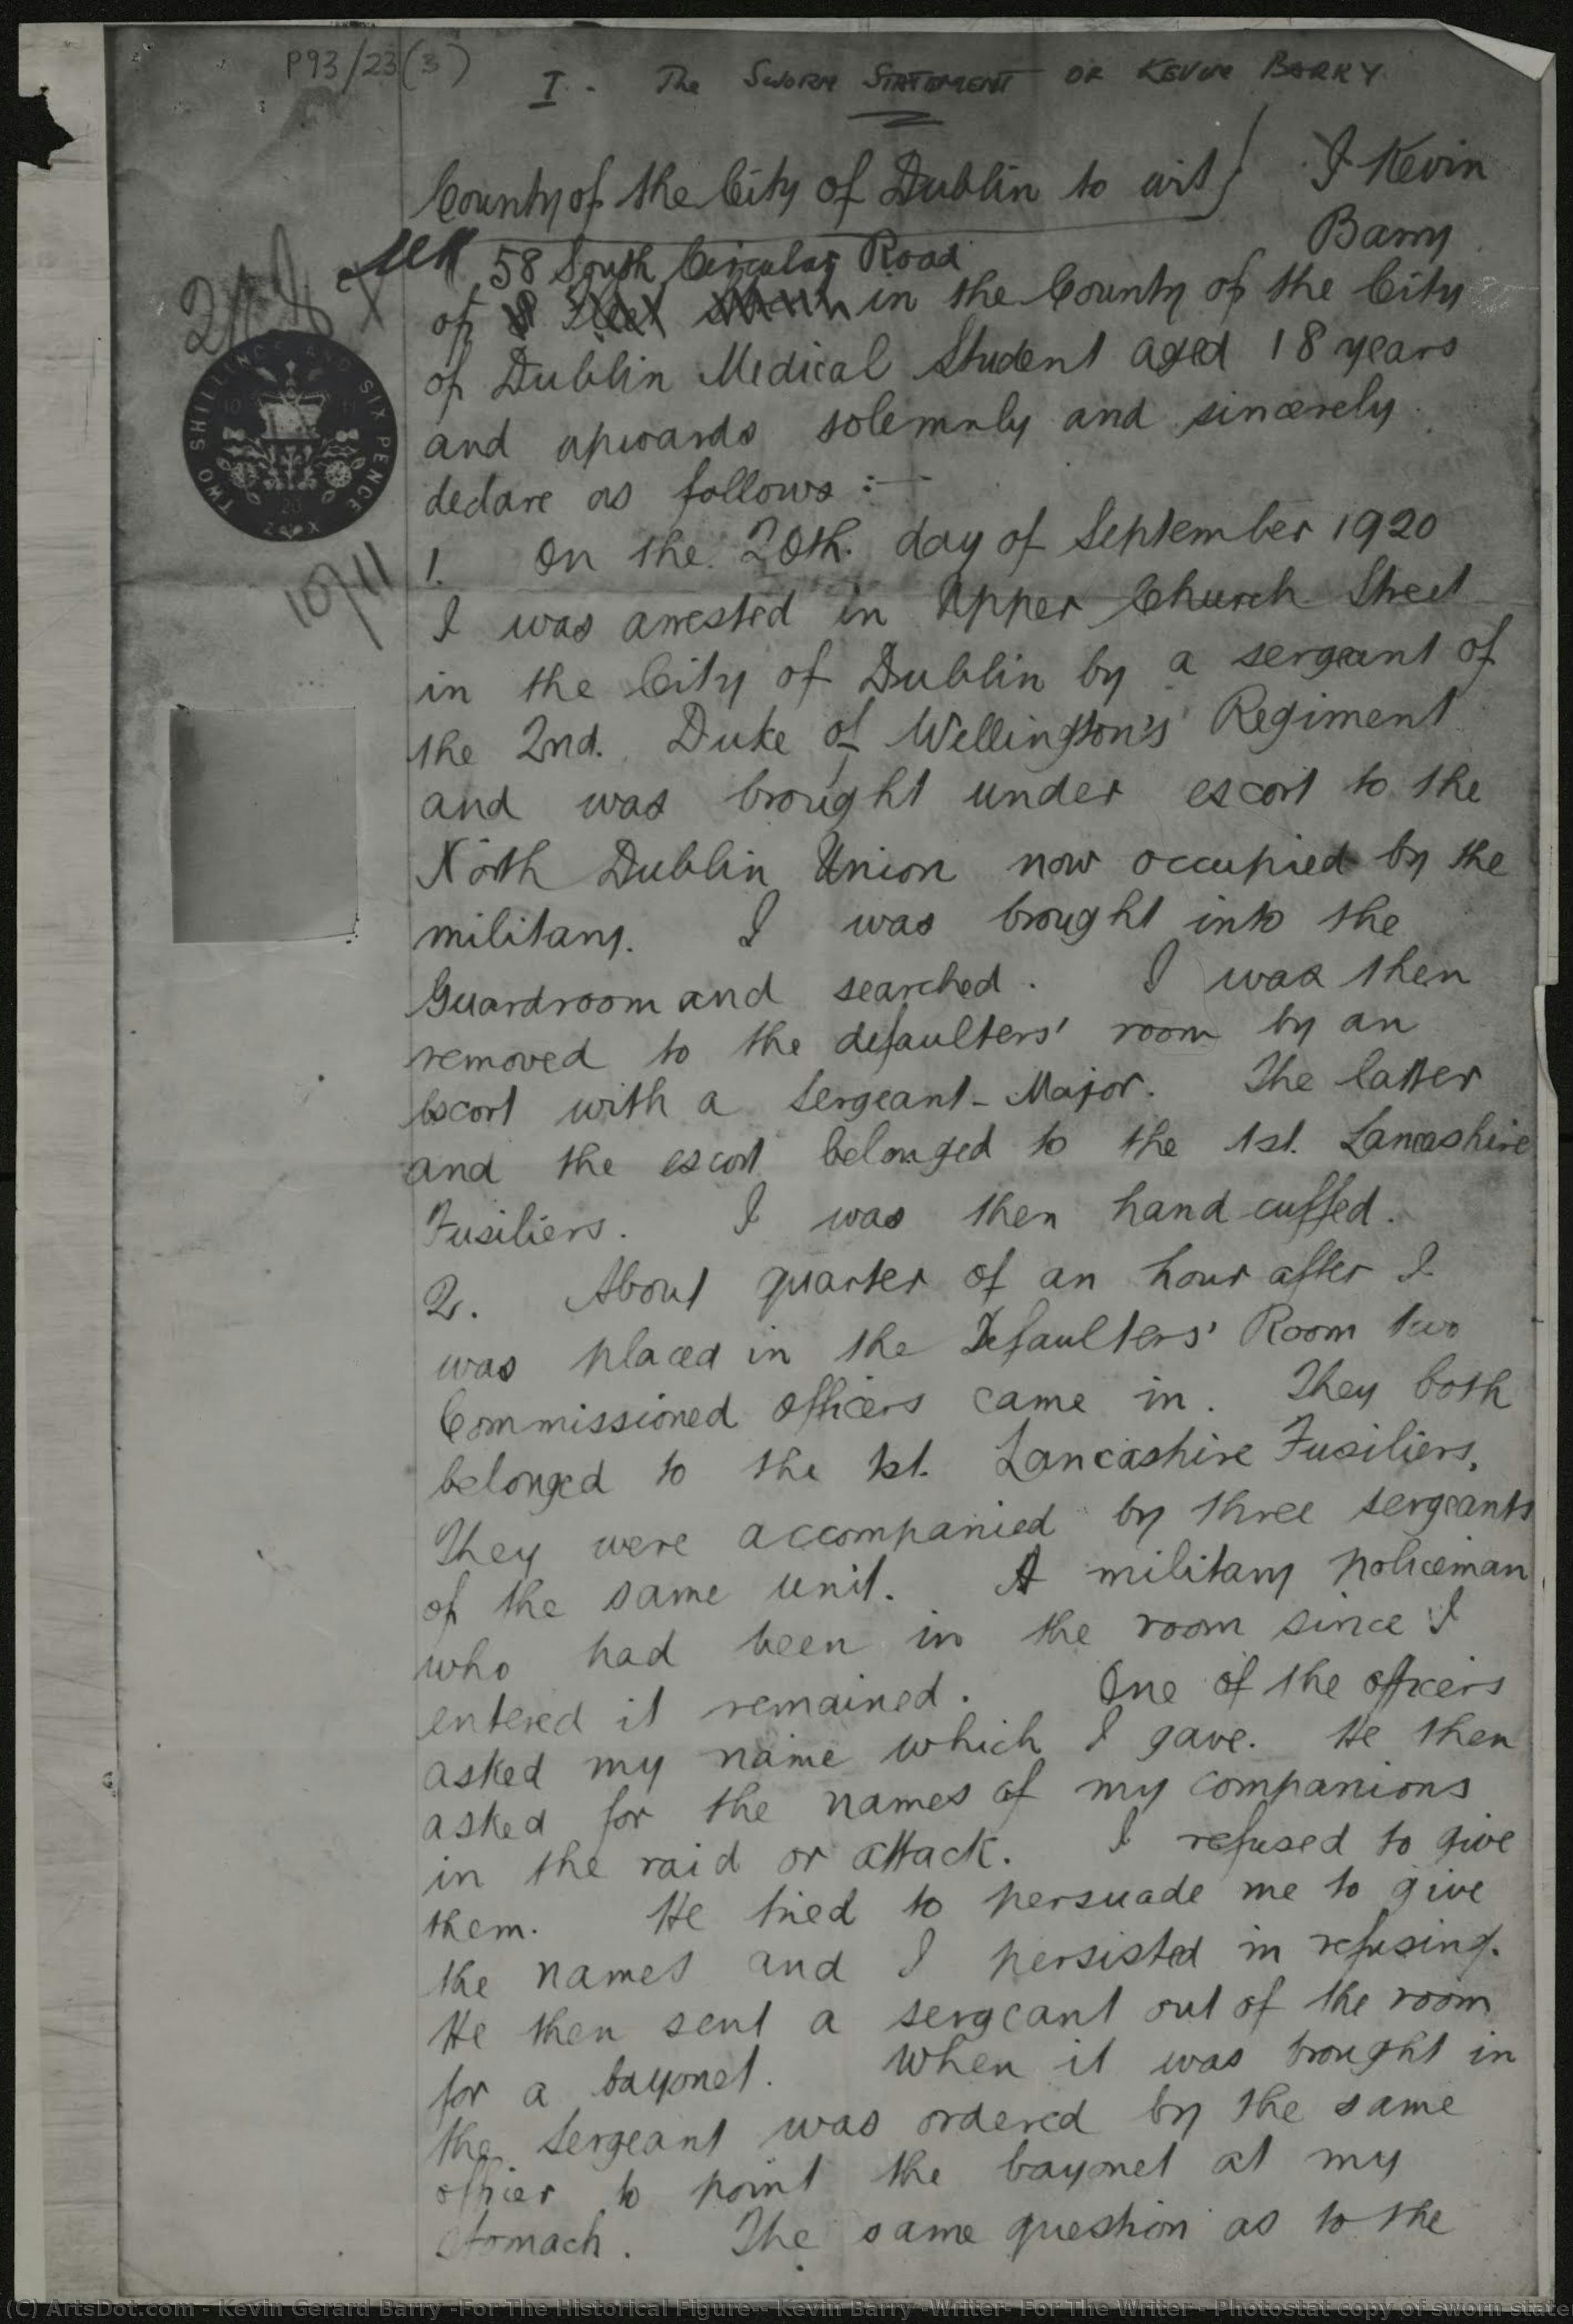 P93/23(3)
I. - The Sworn Statement of Kevin Barry
County of the City of Dublin to wit } I Kevin
Barry
58 South Circular Road
of in the County of the City
of Dublin Medical Student aged 18 years
and upwards solemnly and sincerely
declare as follows :—
TWO SHILLINGS AND SIX PENCE
10 11
20
10/11
1. On the 20th. day of September 1920
I was arrested in Upper Church Street
in the City of Dublin by a sergeant of
the 2nd. Duke of Wellington's Regiment
and was brought under escort to the
North Dublin Union now occupied by the
military. I was brought into the
Guardroom and searched. I was then
removed to the defaulters' room by an
escort with a Sergeant-Major. The latter
and the escort belonged to the 1st. Lancashire
Fusiliers. I was then hand cuffed.
2. About quarter of an hour after I
was placed in the Defaulters' Room two
Commissioned Officers came in. They both
belonged to the 1st. Lancashire Fusiliers.
They were accompanied by three sergeants
of the same unit. A military policeman
who had been in the room since I
entered it remained. One of the officers
asked my name which I gave. He then
asked for the names of my companions
in the raid or attack. I refused to give
them. He tried to persuade me to give
the names and I persisted in refusing.
He then sent a sergeant out of the room
for a bayonet. When it was brought in
the Sergeant was ordered by the same
officer to point the bayonet at my
stomach. The same question as to the
(C) ArtsDot.com - Kevin Gerard Barry -For The Historical Figure-- Kevin Barry -Writer- For The Writer - Photostat copy of sworn state